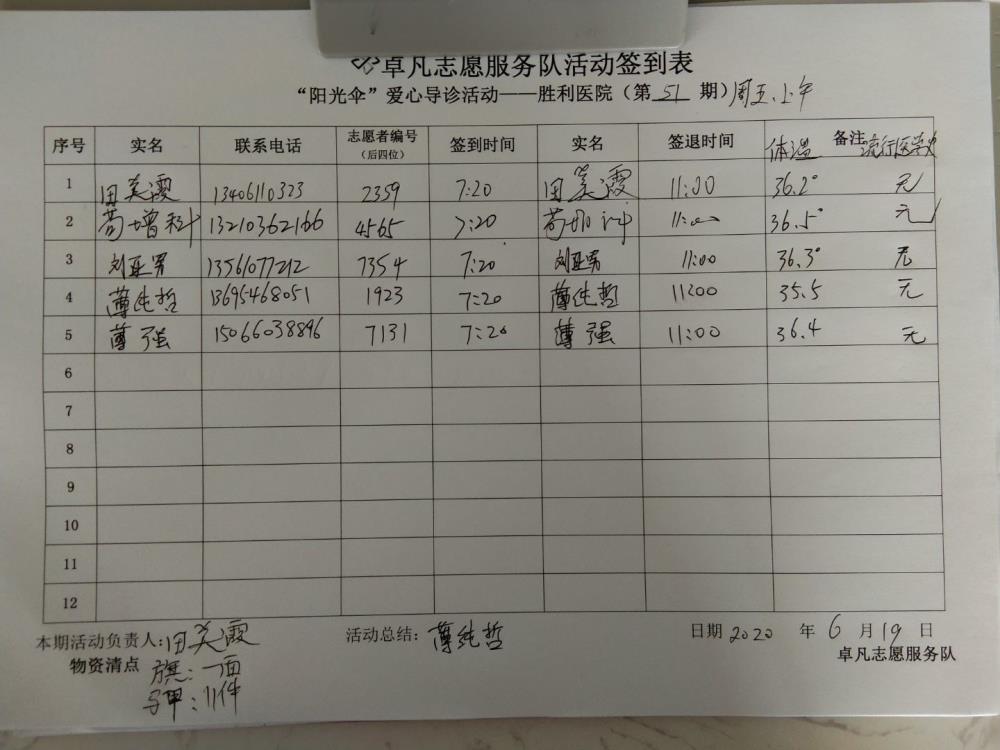 卓凡志愿服务队活动签到表
“阳光伞”爱心导诊活动——胜利医院（第 51 期）周五、上午
序号 实名 联系电话 志愿者编号（后四位） 签到时间 实名 签退时间 体温 备注 流行医学史
1 田美霞 13406110323 2359 7:20 田美霞 11:00 36.2° 无
2 苟增科 13210362166 4565 7:20 苟增科 11:00 36.5° 无
3 刘亚男 13561077212 7354 7:20 刘亚男 11:00 36.3° 无
4 薄纯哲 13695468051 1923 7:20 薄纯哲 11:00 35.5 无
5 薄强 15066038896 7131 7:20 薄强 11:00 36.4 无
6
7
8
9
10
11
12
本期活动负责人：田美霞 活动总结：薄纯哲 日期 2020 年 6 月 19 日
物资清点 旗：一面 卓凡志愿服务队
马甲：11件